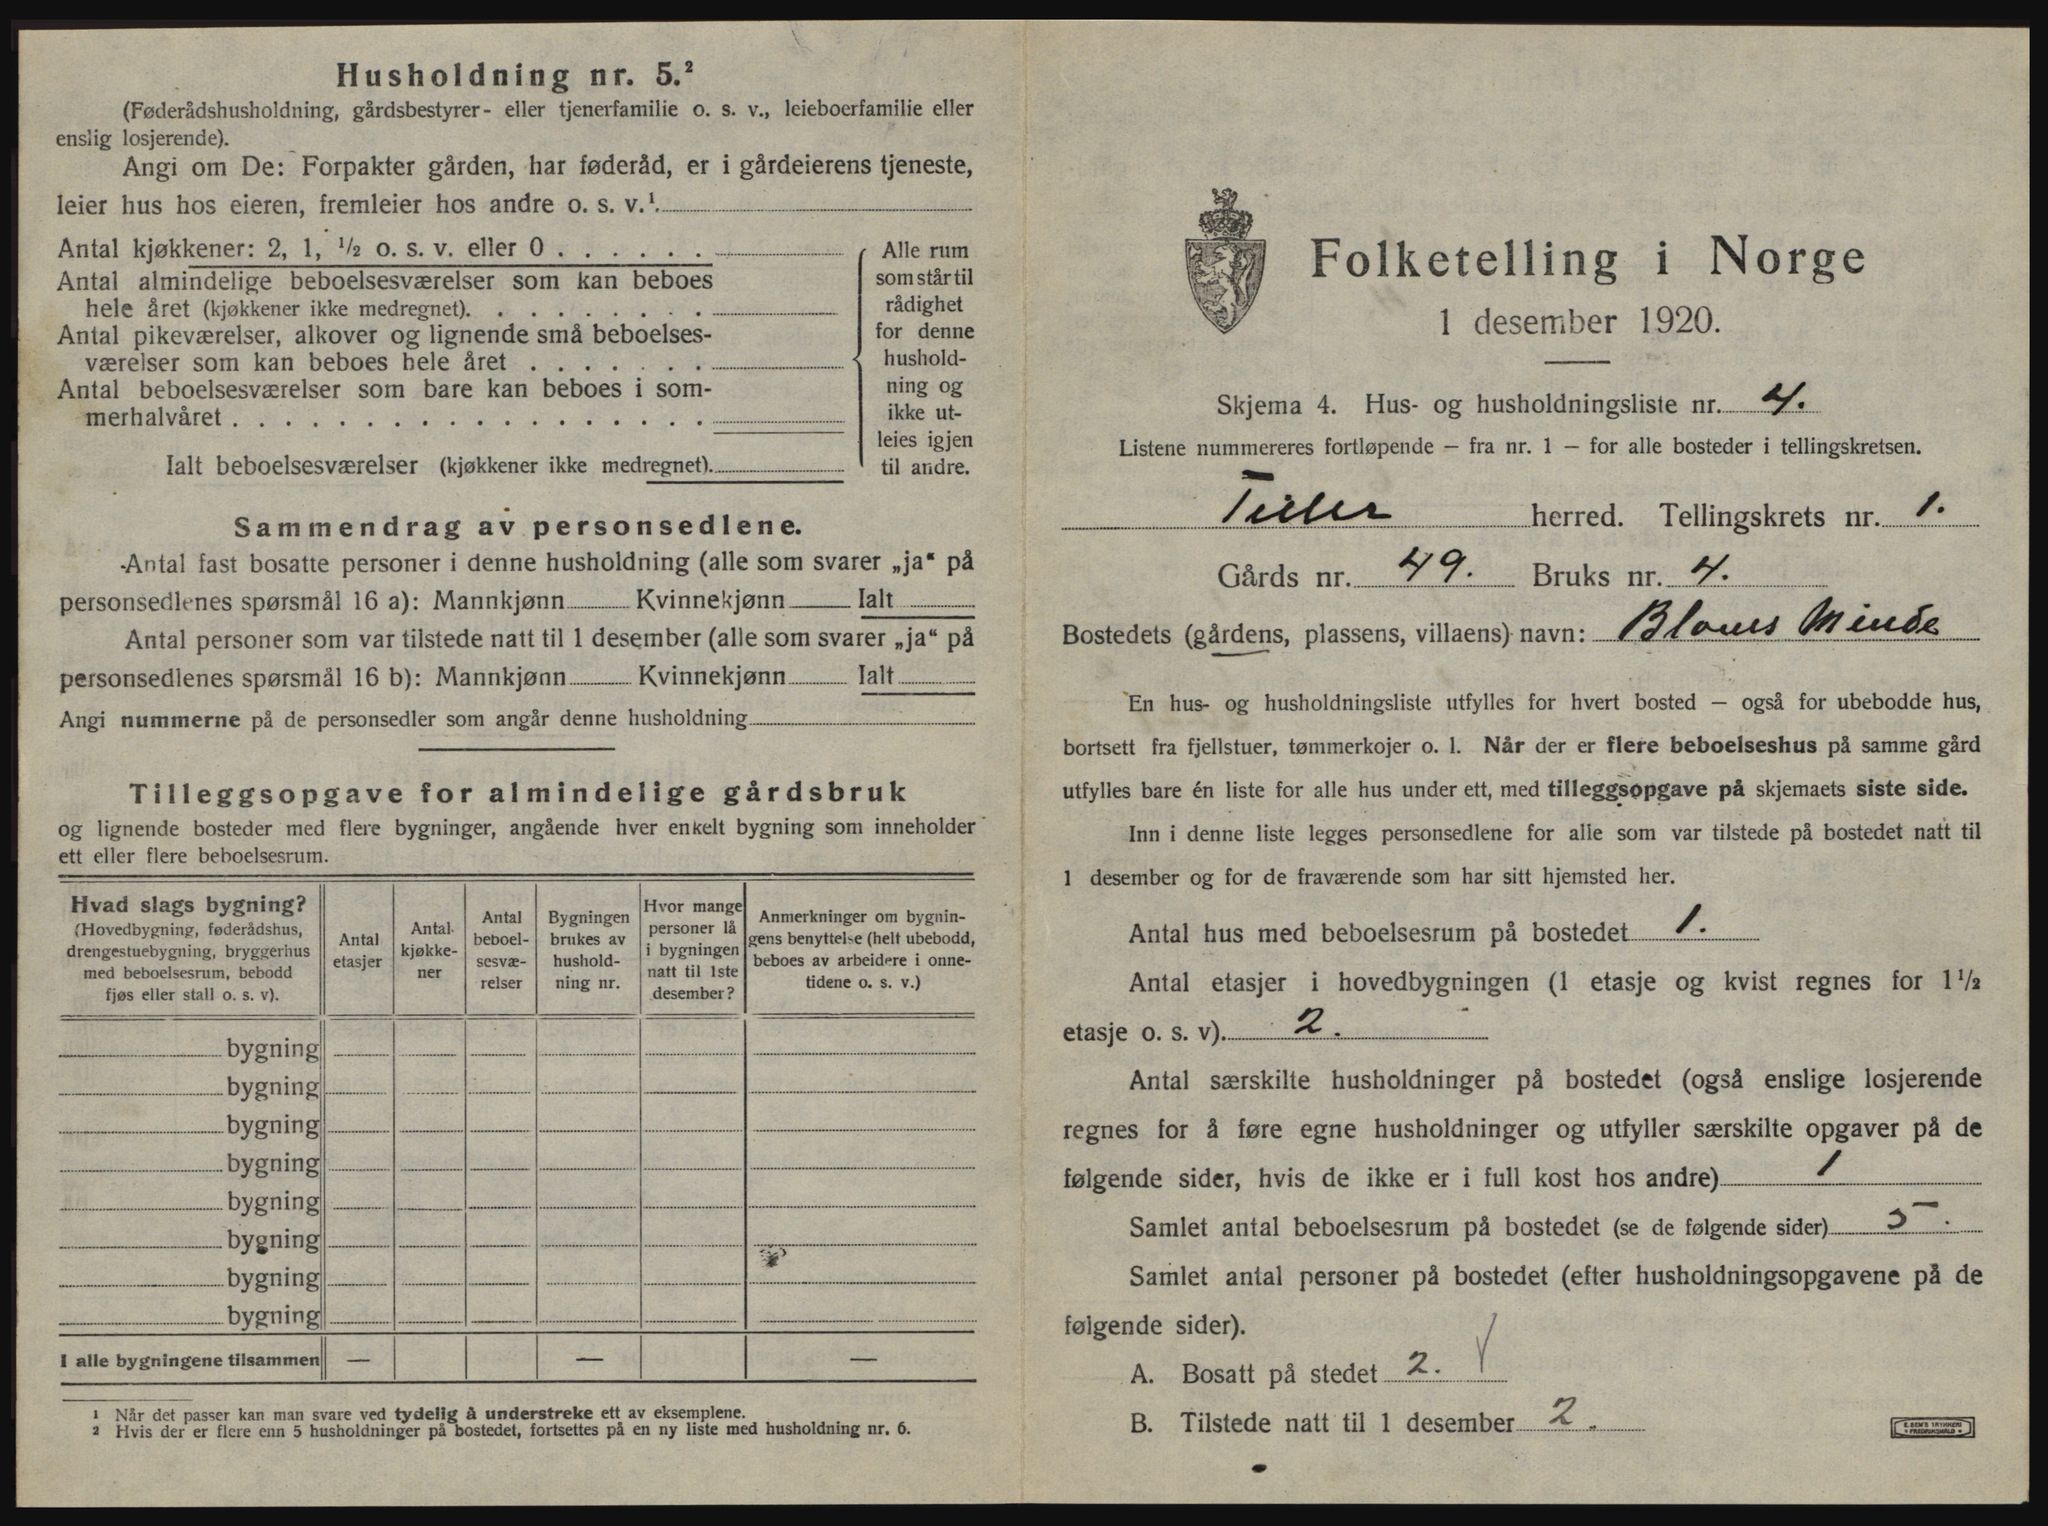 Husholdning nr. 5.²
(Føderådshusholdning, gårdsbestyrer- eller tjenerfamilie o. s. v., leieboerfamilie eller
enslig losjerende).
Angi om De: Forpakter gården, har føderåd, er i gårdeierens tjeneste,
leier hus hos eieren, fremleier hos andre o. s. v.¹
Antal kjøkkener: 2, 1, ½ o. s. v. eller 0 . . . . . .
Antal almindelige beboelsesværelser som kan beboes
hele året (kjøkkener ikke medregnet). . . . . . . . .
Antal pikeværelser, alkover og lignende små beboelses-
værelser som kan beboes hele året . . . . . . .
Antal beboelsesværelser som bare kan beboes i som-
merhalvåret . . . . . . . . . . . . . . . . . .
Ialt beboelsesværelser (kjøkkener ikke medregnet).
Alle rum
som står til
rådighet
for denne
hushold-
ning og
ikke ut-
leies igjen
til andre.
Sammendrag av personsedlene.
Antal fast bosatte personer i denne husholdning (alle som svarer „ja“ på
personsedlenes spørsmål 16 a): Mannkjønn Kvinnekjønn Ialt
Antal personer som var tilstede natt til 1 desember (alle som svarer „ja“ på
personsedlenes spørsmål 16 b): Mannkjønn Kvinnekjønn Ialt
Angi nummerne på de personsedler som angår denne husholdning
Tilleggsopgave for almindelige gårdsbruk
og lignende bosteder med flere bygninger, angående hver enkelt bygning som inneholder
ett eller flere beboelsesrum.
Hvad slags bygning?
(Hovedbygning, føderådshus,
drengestuebygning, bryggerhus
med beboelsesrum, bebodd
fjøs eller stall o. s. v).
Antal
etasjer
Antal
kjøkke-
ner
Antal
beboel-
sesvæ-
relser
Bygningen
brukes av
hushold-
ning nr.
Hvor mange
personer lå
i bygningen
natt til 1ste
desember?
Anmerkninger om bygnin-
gens benyttelse (helt ubebodd,
beboes av arbeidere i onne-
tidene o. s. v.)
bygning
bygning
bygning
bygning
bygning
bygning
bygning
bygning
I alle bygningene tilsammen — — —
¹ Når det passer kan man svare ved tydelig å understreke ett av eksemplene.
² Hvis der er flere enn 5 husholdninger på bostedet, fortsettes på en ny liste med husholdning nr. 6.
Folketelling i Norge
1 desember 1920.
Skjema 4. Hus- og husholdningsliste nr. 4.
Listene nummereres fortløpende — fra nr. 1 — for alle bosteder i tellingskretsen.
Tiller herred. Tellingskrets nr. 1.
Gårds nr. 49. Bruks nr. 4.
Bostedets (gårdens, plassens, villaens) navn: Minde
En hus- og husholdningsliste utfylles for hvert bosted — også for ubebodde hus,
bortsett fra fjellstuer, tømmerkojer o. l. Når der er flere beboelseshus på samme gård
utfylles bare én liste for alle hus under ett, med tilleggsopgave på skjemaets siste side.
Inn i denne liste legges personsedlene for alle som var tilstede på bostedet natt til
1 desember og for de fraværende som har sitt hjemsted her.
Antal hus med beboelsesrum på bostedet 1.
Antal etasjer i hovedbygningen (1 etasje og kvist regnes for 1½
etasje o. s. v). 2.
Antal særskilte husholdninger på bostedet (også enslige losjerende
regnes for å føre egne husholdninger og utfyller særskilte opgaver på de
følgende sider, hvis de ikke er i full kost hos andre) 1
Samlet antal beboelsesrum på bostedet (se de følgende sider) 5.
Samlet antal personer på bostedet (efter husholdningsopgavene på de
følgende sider).
A. Bosatt på stedet 2.
B. Tilstede natt til 1 desember 2.